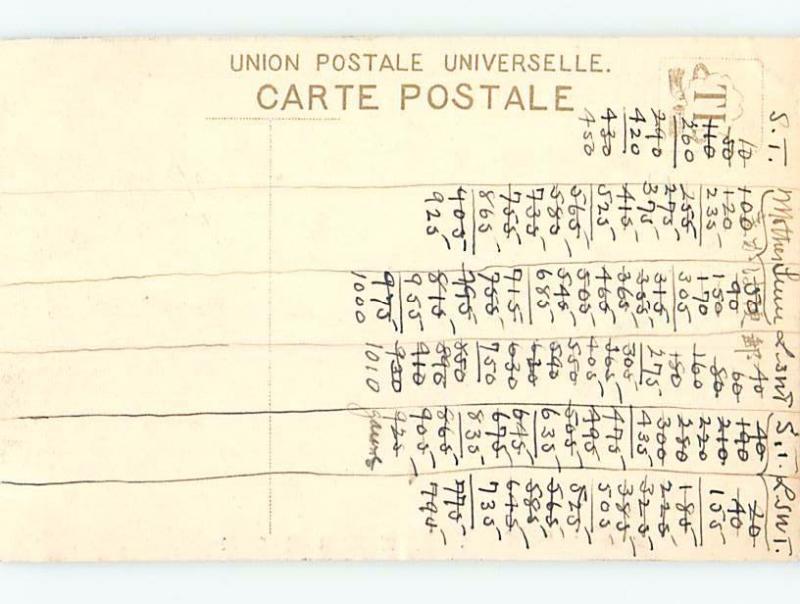 UNION POSTALE UNIVERSELLE.
CARTE POSTALE
S.T.
10
50
110
260
290
420
430
450
Mother
100
120
235
255
275
375
415
525
565
585
735
755
865
905
925
50
90
150
170
305
315
355
365
465
505
545
685
715
755
795
815
955
975
1000
L.SWT
40
60
80
160
180
275
305
365
405
550
590
620
630
750
850
890
910
930
1010
S.T.
40
190
210
220
280
300
435
475
495
505
635
645
675
835
865
905
925
game
L.SWT.
20
40
155
185
225
325
385
505
525
565
585
645
735
775
795